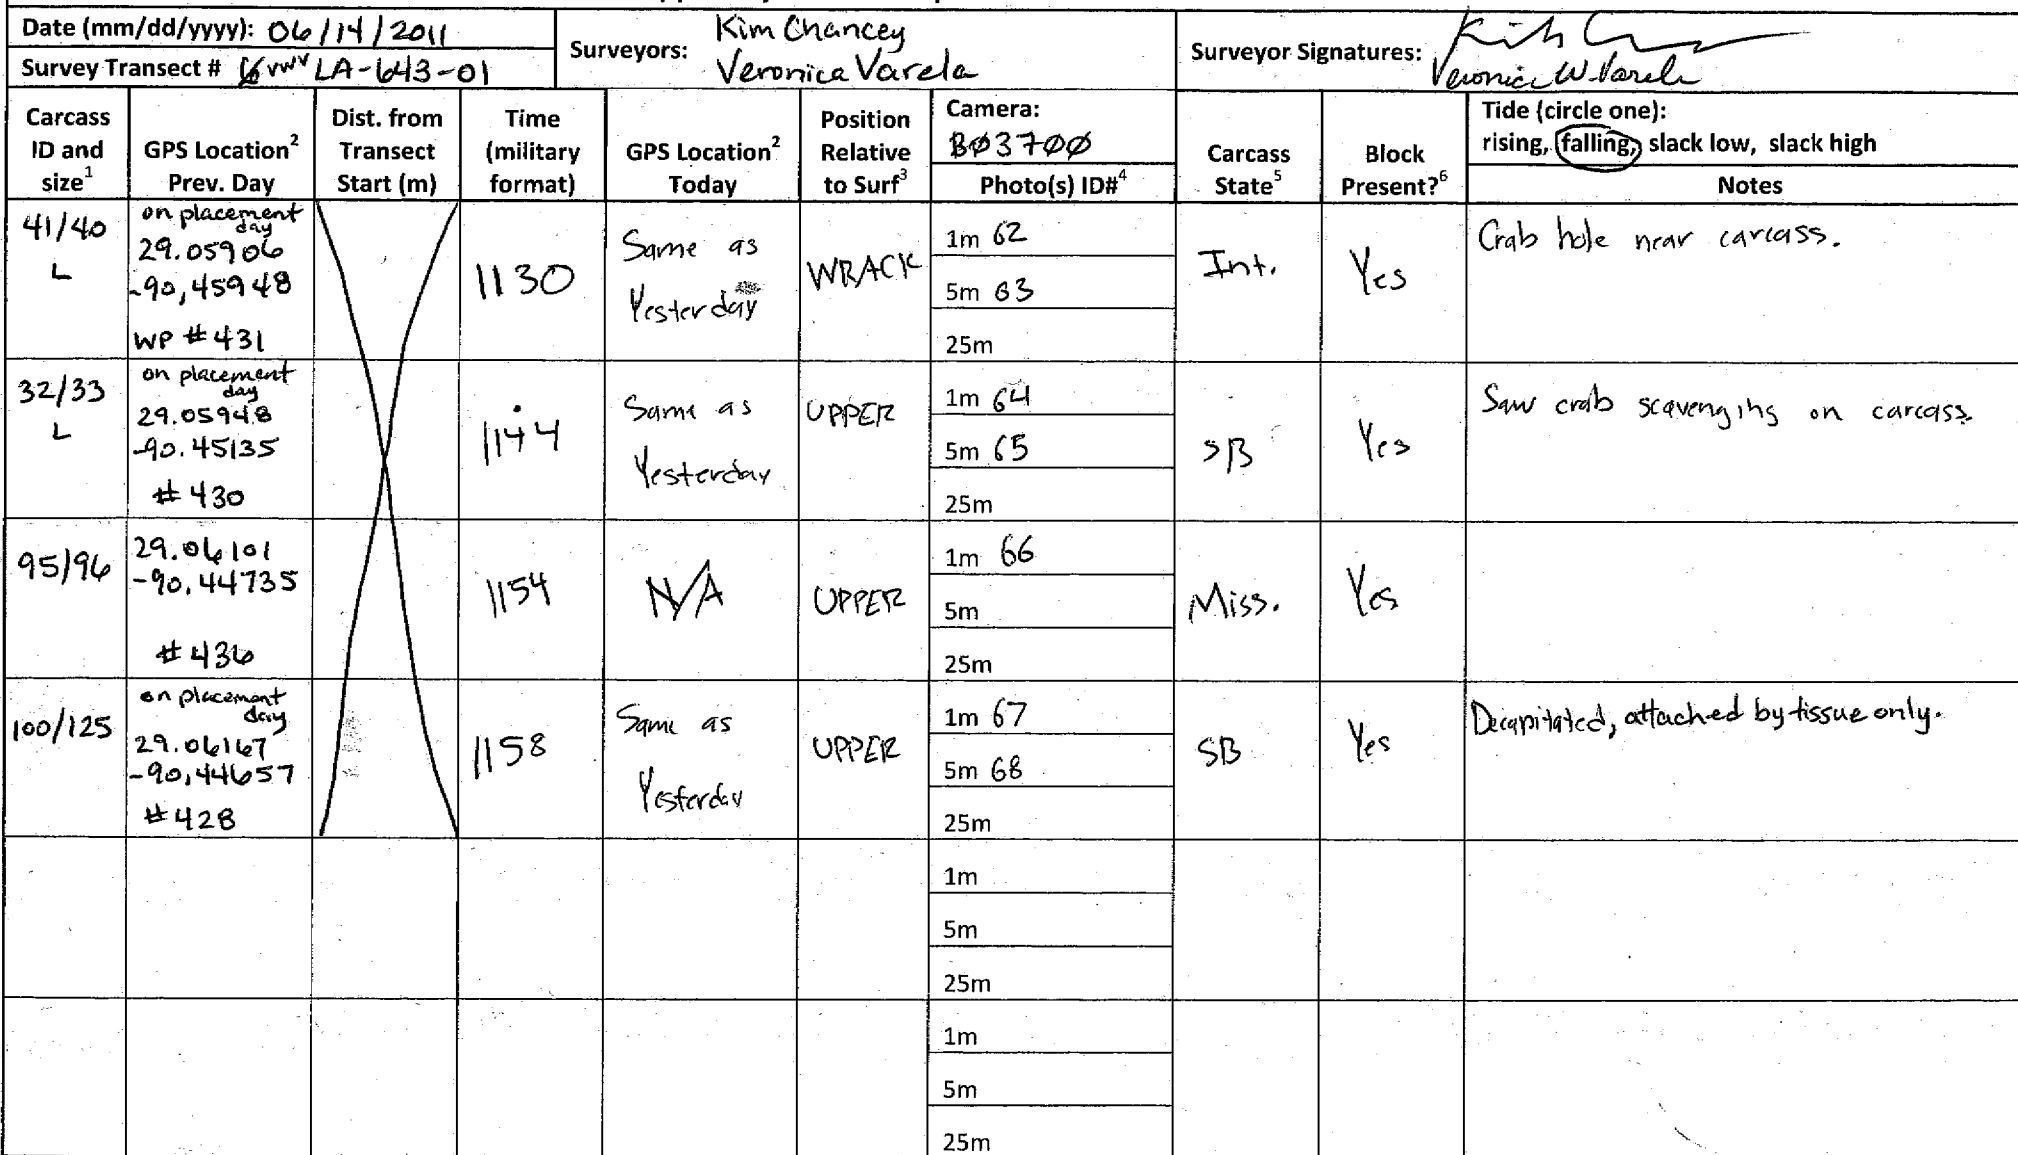 Date (mm/dd/yyyy): 06/14/2011
Survey Transect # VWV LA-643-01
Surveyors: Kim Chancey
Veronica Varela
Surveyor Signatures:
Veronica W. Varela
Carcass ID and size1
GPS Location2 Prev. Day
Dist. from Transect Start (m)
Time (military format)
GPS Location2 Today
Position Relative to Surf3
Camera:
BØ37ØØ
Photo(s) ID#4
Carcass State5
Block Present?6
Tide (circle one):
rising, falling, slack low, slack high
Notes
41/40
L
on placement day
29.05906
-90,45948
WP #431
1130
Same as
Yesterday
WRACK
1m 62
5m 63
25m
Int.
Yes
Crab hole near carcass.
32/33
L
on placement day
29.05948
-90.45135
#430
1144
Same as
Yesterday
UPPER
1m 64
5m 65
25m
SB
Yes
Saw crab scavenging on carcass.
95/96
29.06101
-90.44735
#436
1154
N/A
UPPER
1m 66
5m
25m
Miss.
Yes
100/125
on placement day
29.06167
-90,44657
#428
1158
Same as
Yesterday
UPPER
1m 67
5m 68
25m
SB
Yes
Decapitated, attached by tissue only.
1m
5m
25m
1m
5m
25m